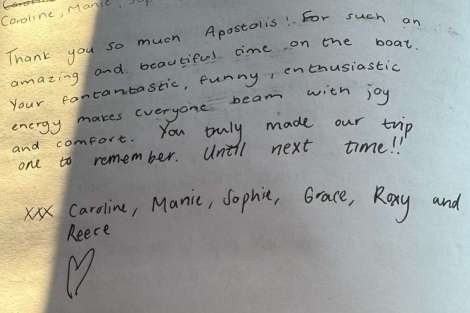 Caroline, Manie, Sop
Thank you so much Apostolis! For such an
amazing and beautiful time on the boat.
Your fantantastic, funny, enthusiastic
energy makes everyone beam with joy
and comfort. You truly made our trip
one to remember. Until next time!!
xxx Caroline, Manie, Sophie, Grace, Roxy and
Reece